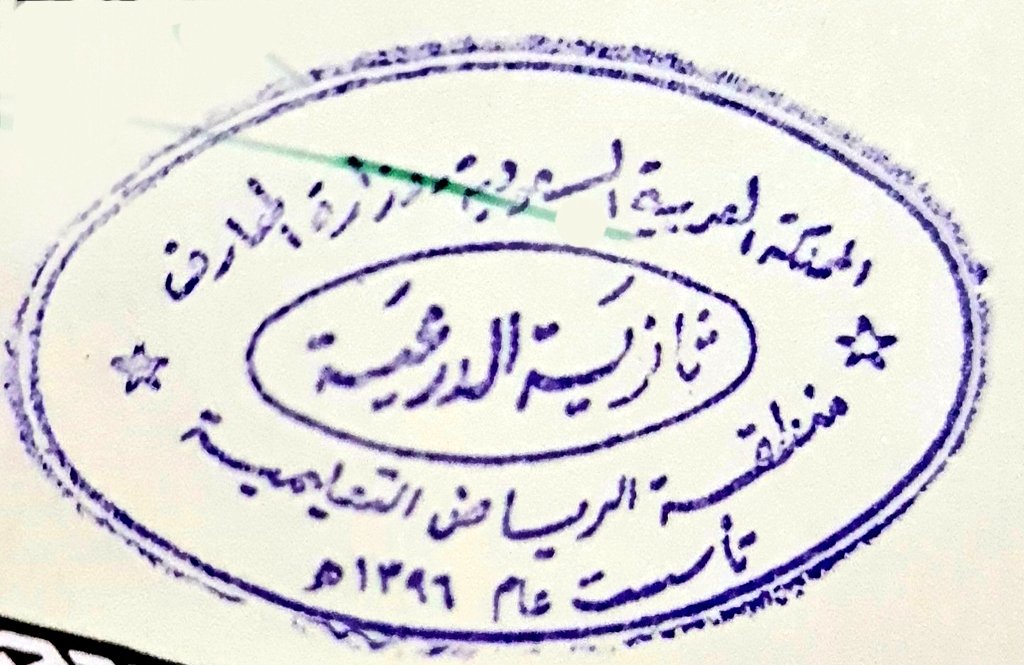 المملكة العربية السعودية وزارة المعارف
ثانوية الدرعية
منطقة الرياض التعليمية
تأسست عام ١٣٩٦ه